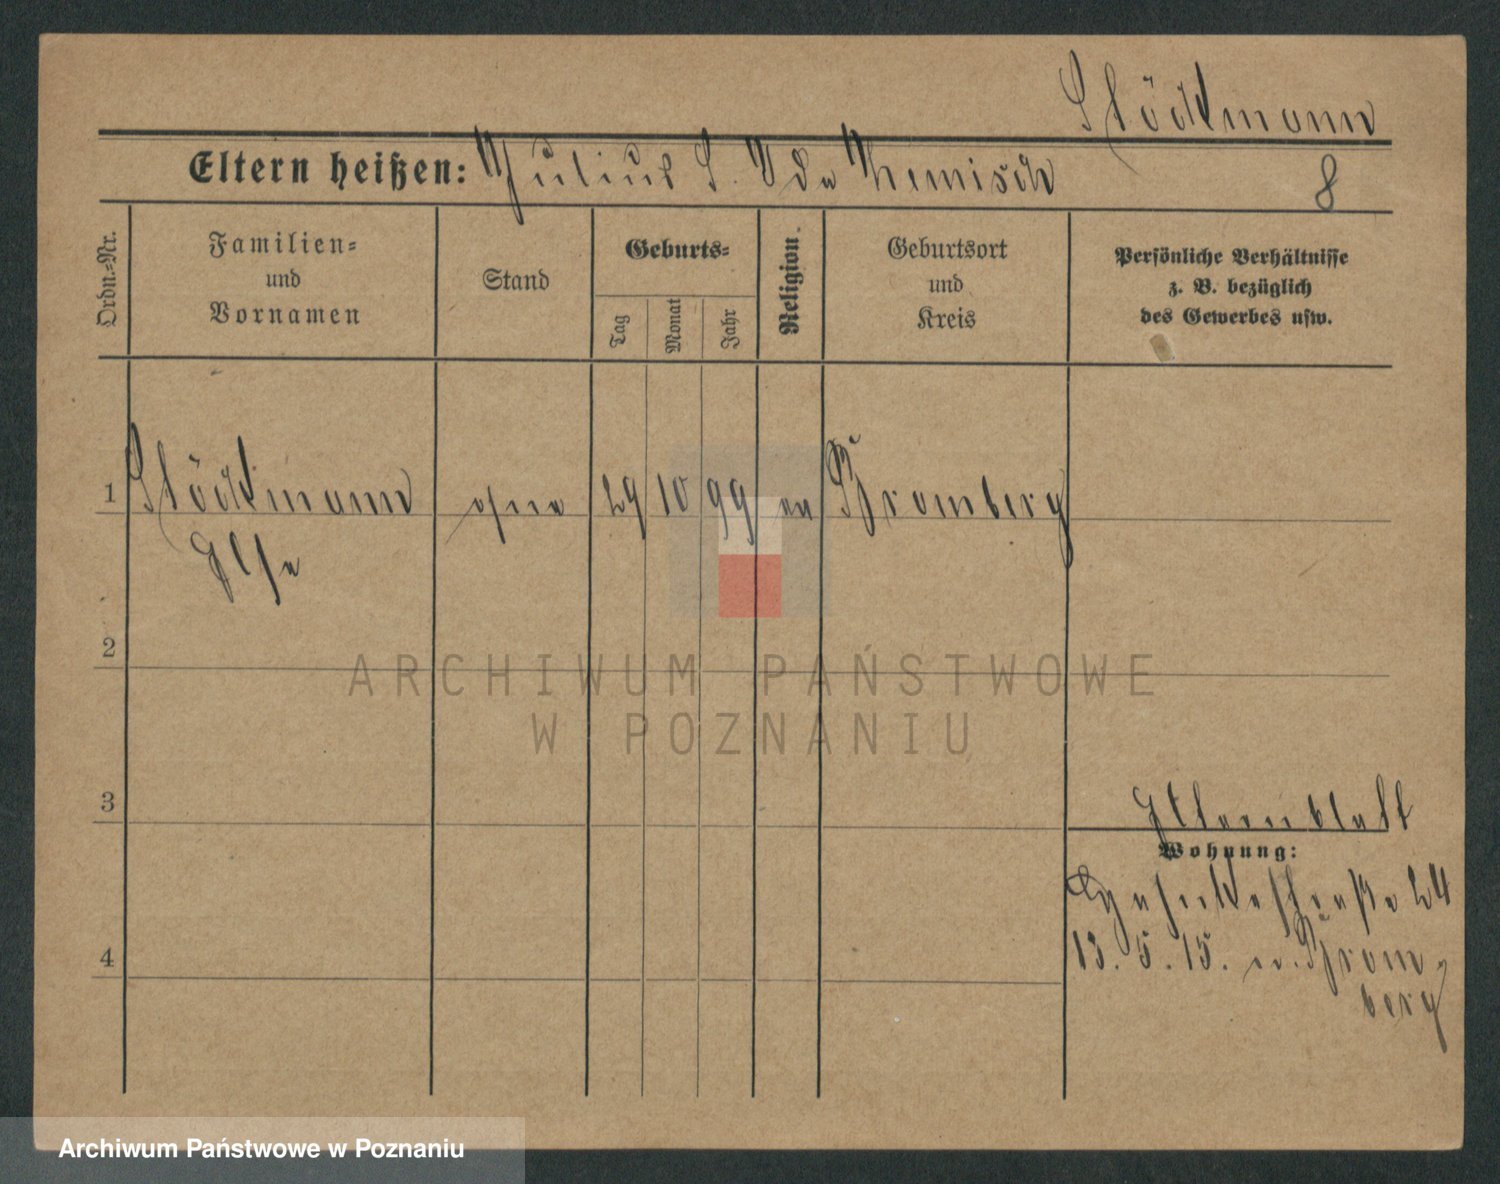 Stöckmann
Eltern heißen: Julius S. Ida
8
Ordn.-Nr.
Familien-
und
Vornamen
Stand
Geburts-
Tag
Monat
Jahr
Religion.
Geburtsort
und
Kreis
Persönliche Verhältnisse
z. B. bezüglich
des Gewerbes usw.
1 Stöckmann ohne 29 10 99 ev Bromberg
Else
2
ARCHIWUM PAŃSTWOWE
W POZNANIU
3
Elternblatt
Wohnung:
24
13. 5. 15. v. Brom-
berg
4
Archiwum Państwowe w Poznaniu